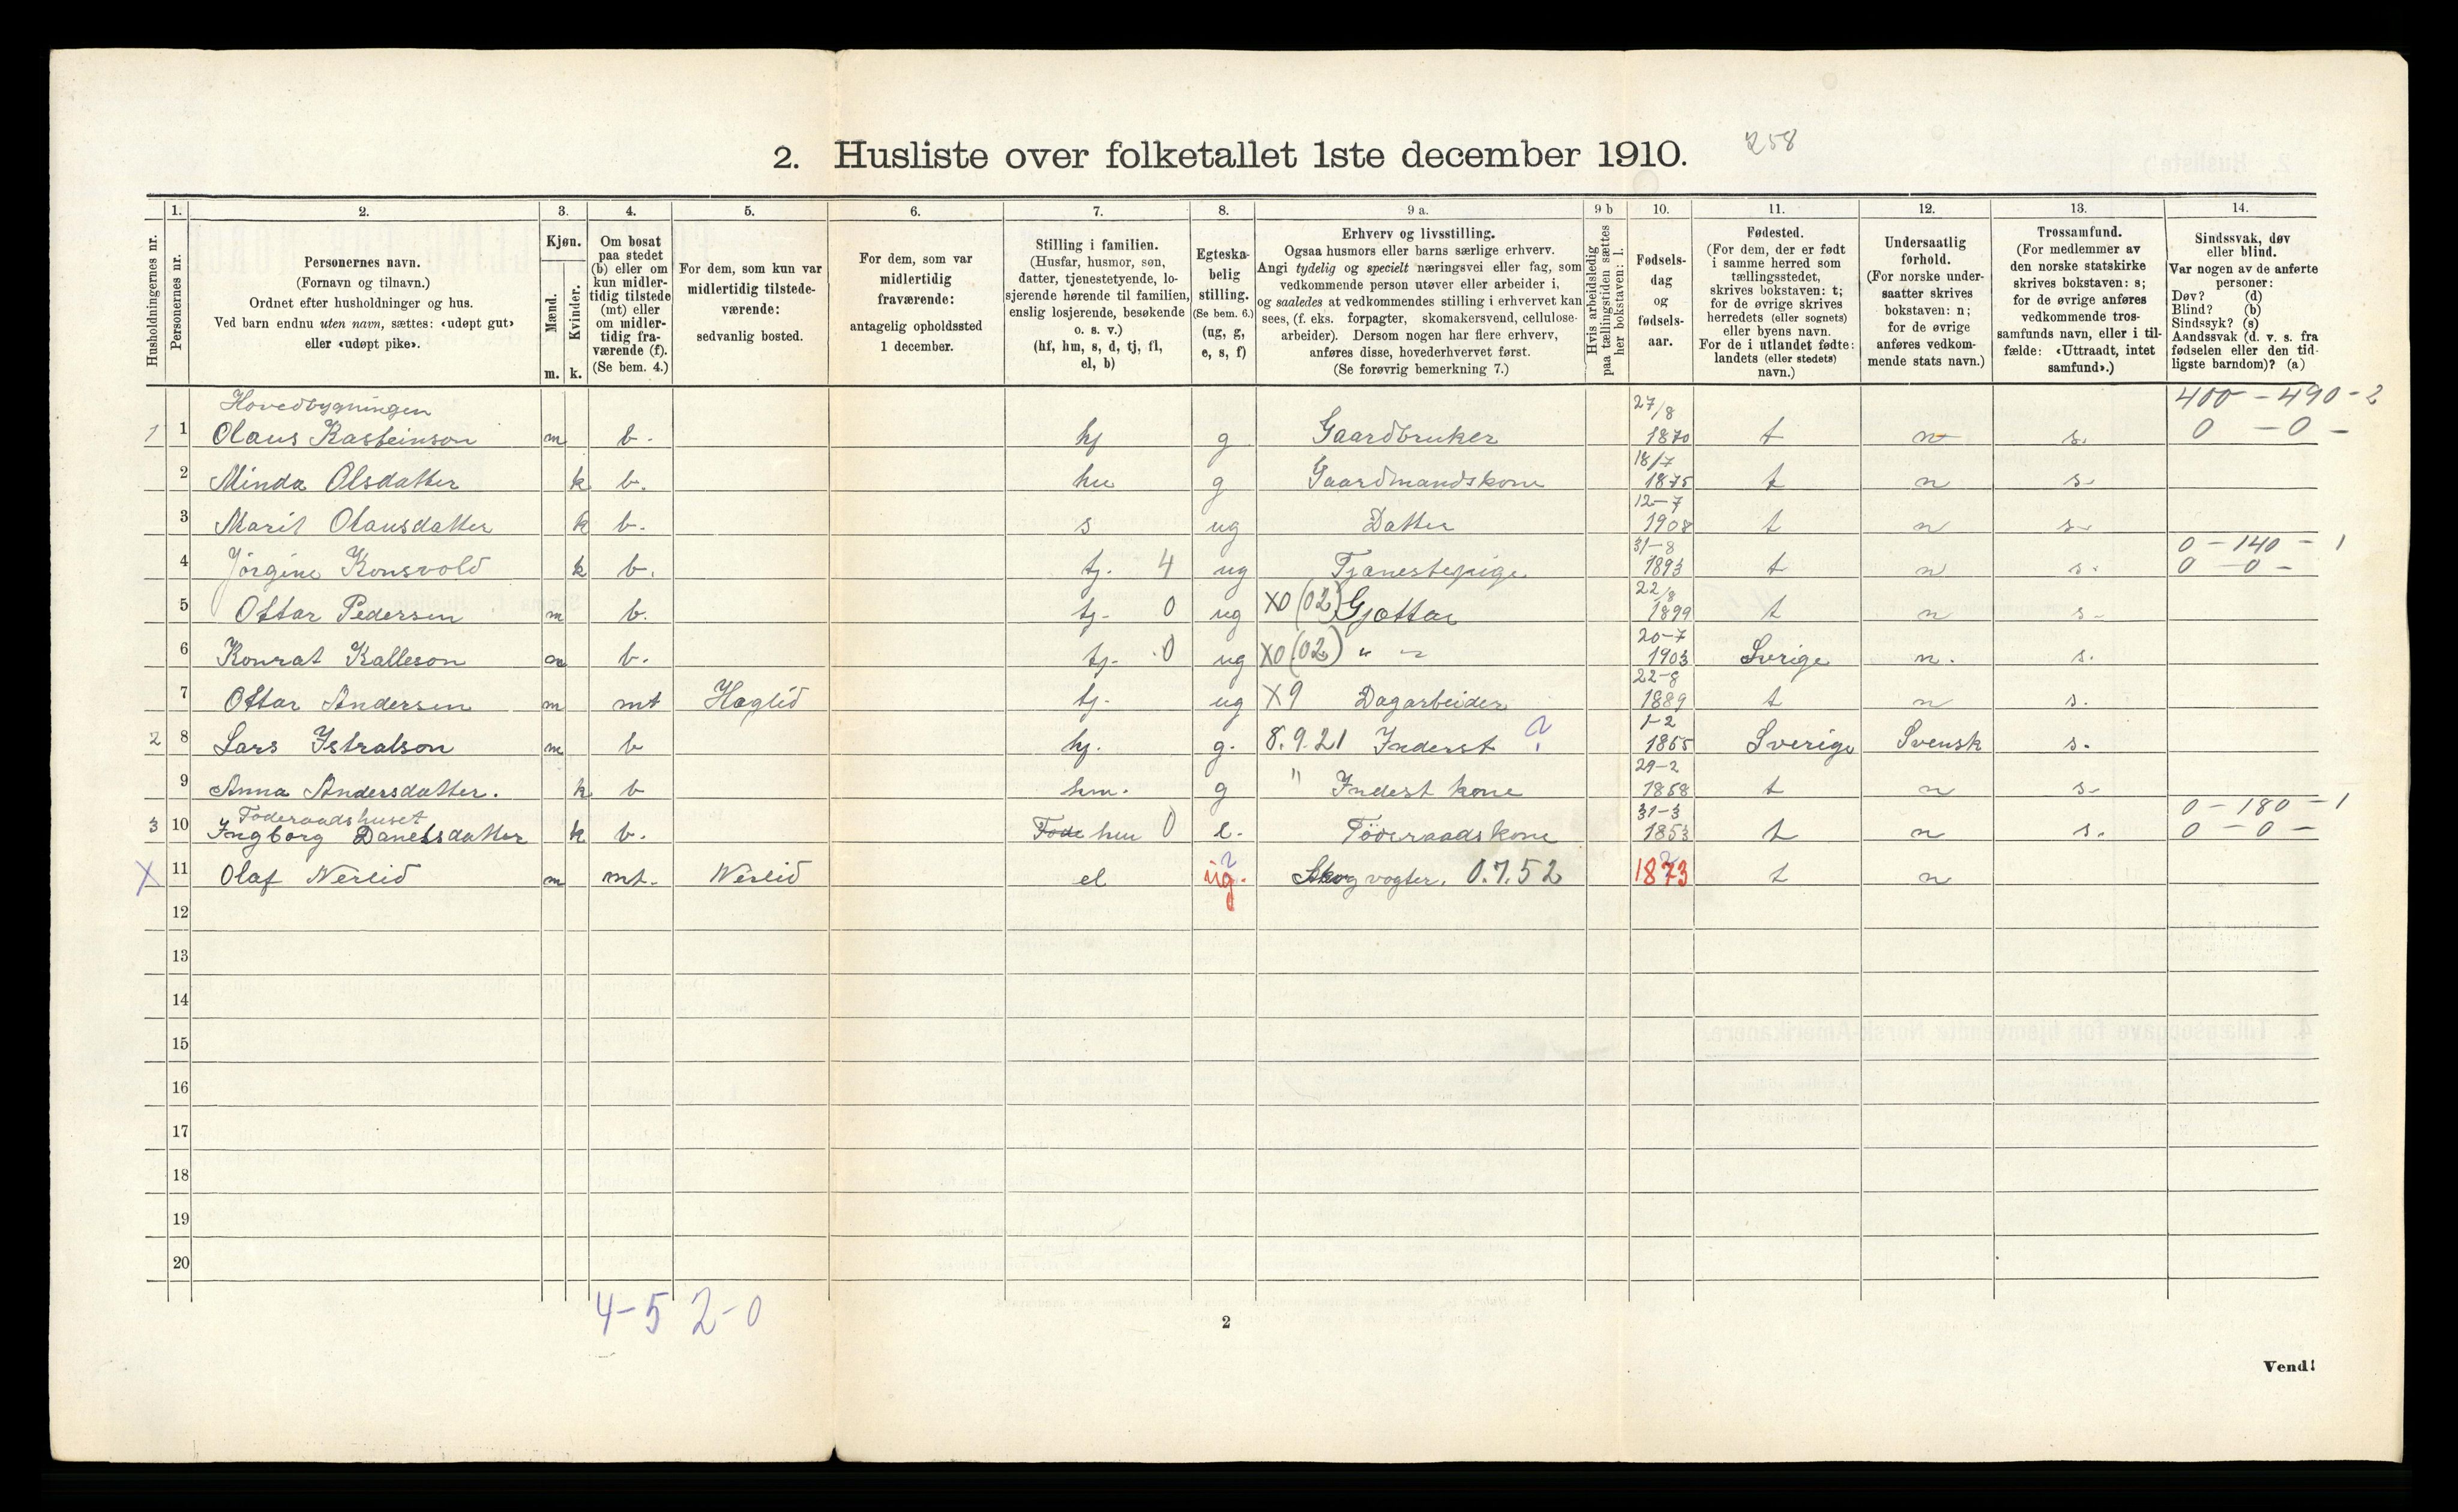 2. Husliste over folketallet 1ste december 1910. 258
1. 2. 3. 4. 5. 6. 7. 8. 9 a. 9 b 10. 11. 12. 13. 14.
Husholdningernes nr.
Personernes nr.
Personernes navn.
(Fornavn og tilnavn.)
Ordnet efter husholdninger og hus.
Ved barn endnu uten navn, sættes: «udøpt gut»
eller «udøpt pike».
Kjøn.
Mænd.
Kvinder.
m. k.
Om bosat
paa stedet
(b) eller om
kun midler-
tidig tilstede
(mt) eller
om midler-
tidig fra-
værende (f).
(Se bem. 4.)
For dem, som kun var
midlertidig tilstede-
værende:
sedvanlig bosted.
For dem, som var
midlertidig
fraværende:
antagelig opholdssted
1 december.
Stilling i familien.
(Husfar, husmor, søn,
datter, tjenestetyende, lo-
sjerende hørende til familien,
enslig losjerende, besøkende
o. s. v.)
(hf, hm, s, d, tj, fl,
el, b)
Egteska-
belig
stilling.
(Se bem. 6.)
(ug, g,
e, s, f)
Erhverv og livsstilling.
Ogsaa husmors eller barns særlige erhverv.
Angi tydelig og specielt næringsvei eller fag, som
vedkommende person utøver eller arbeider i,
og saaledes at vedkommendes stilling i erhvervet kan
sees, (f. eks. forpagter, skomakersvend, cellulose-
arbeider). Dersom nogen har flere erhverv,
anføres disse, hovederhvervet først.
(Se forøvrig bemerkning 7.)
Hvis arbeidsledig
paa tællingstiden sættes
her bokstaven: l.
Fødsels-
dag
og
fødsels-
aar.
Fødested.
(For dem, der er født
i samme herred som
tællingsstedet,
skrives bokstaven: t;
for de øvrige skrives
herredets (eller sognets)
eller byens navn.
For de i utlandet fødte:
landets (eller stedets)
navn.)
Undersaatlig
forhold.
(For norske under-
saatter skrives
bokstaven: n;
for de øvrige
anføres vedkom-
mende stats navn.)
Trossamfund.
(For medlemmer av
den norske statskirke
skrives bokstaven: s;
for de øvrige anføres
vedkommende tros-
samfunds navn, eller i til-
fælde: «Uttraadt, intet
samfund».)
Sindssvak, døv
eller blind.
Var nogen av de anførte
personer:
Døv? (d)
Blind? (b)
Sindssyk? (s)
Aandssvak (d. v. s. fra
fødselen eller den tid-
ligste barndom)? (a)
Hovedbygningen 27/8 400 - 490 - 2
1 1 Olaus Kasteinson m b. hf g Gaardbruker 1870 t n s. 0 - 0 -
18/7
2 Minda Olsdatter k b. hu g Gaardmandskone 1875 t n s-
12-7
3 Marit Olausdatter k b. s ug Datter 1908 t n s-
31-8 0 - 140 - 1
4 Jörgine Konsvold k b. tj. 4 ug Tjænestepige 1893 t n s. 0 - 0 -
22/8
5 Ottar Pedersen m b. tj- 0 ug X0 (02) Gjættar 1899 t n s-
20-7
6 Konrat Kalleson m b. tj- 0 ug X0 (02) " " 1903 Sverige n. s.
22-8
7 Ottar Andersen m mt Haglid tj- ug X9 Dagarbeider 1889 t n s.
1-2
2 8 Lars Istralson m b hf. g. 8.9.21 Inderst ? 1865 Sverige Svensk s.
29-2
9 Anna Andersdatter. k b hm. g " Indest kone 1858 t n s-
Föderaadshuset 31-3 0 - 180 - 1
3 10 Ingborg Danelsdatter k b. Fode hm 0 e. Föderaadskone 1853 t n s. 0 - 0 -
X 11 Olaf Nerlid m mt. Nerlid el ug. ? Skogvogter. 0.7.52 1873 ? t n
12
13
14
15
16
17
18
19
20
4-5 2-0
2
Vend!